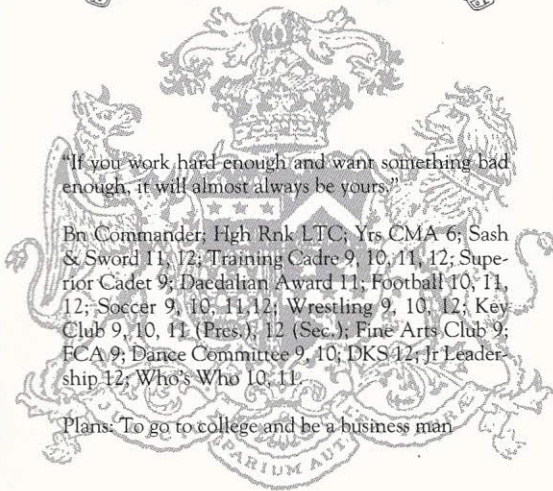 "If you work hard enough and want something bad
enough, it will almost always be yours."
Bn Commander; Hgh Rnk LTC; Yrs CMA 6; Sash
& Sword 11, 12; Training Cadre 9, 10, 11, 12; Supe-
rior Cadet 9; Daedalian Award 11; Football 10, 11,
12; Soccer 9, 10, 11,12; Wrestling 9, 10, 12; Key
Club 9, 10, 11 (Pres.), 12 (Sec.); Fine Arts Club 9;
FCA 9; Dance Committee 9, 10; DKS 12; Jr Leader-
ship 12; Who's Who 10, 11.
Plans: To go to college and be a business man
PARIUM AUT